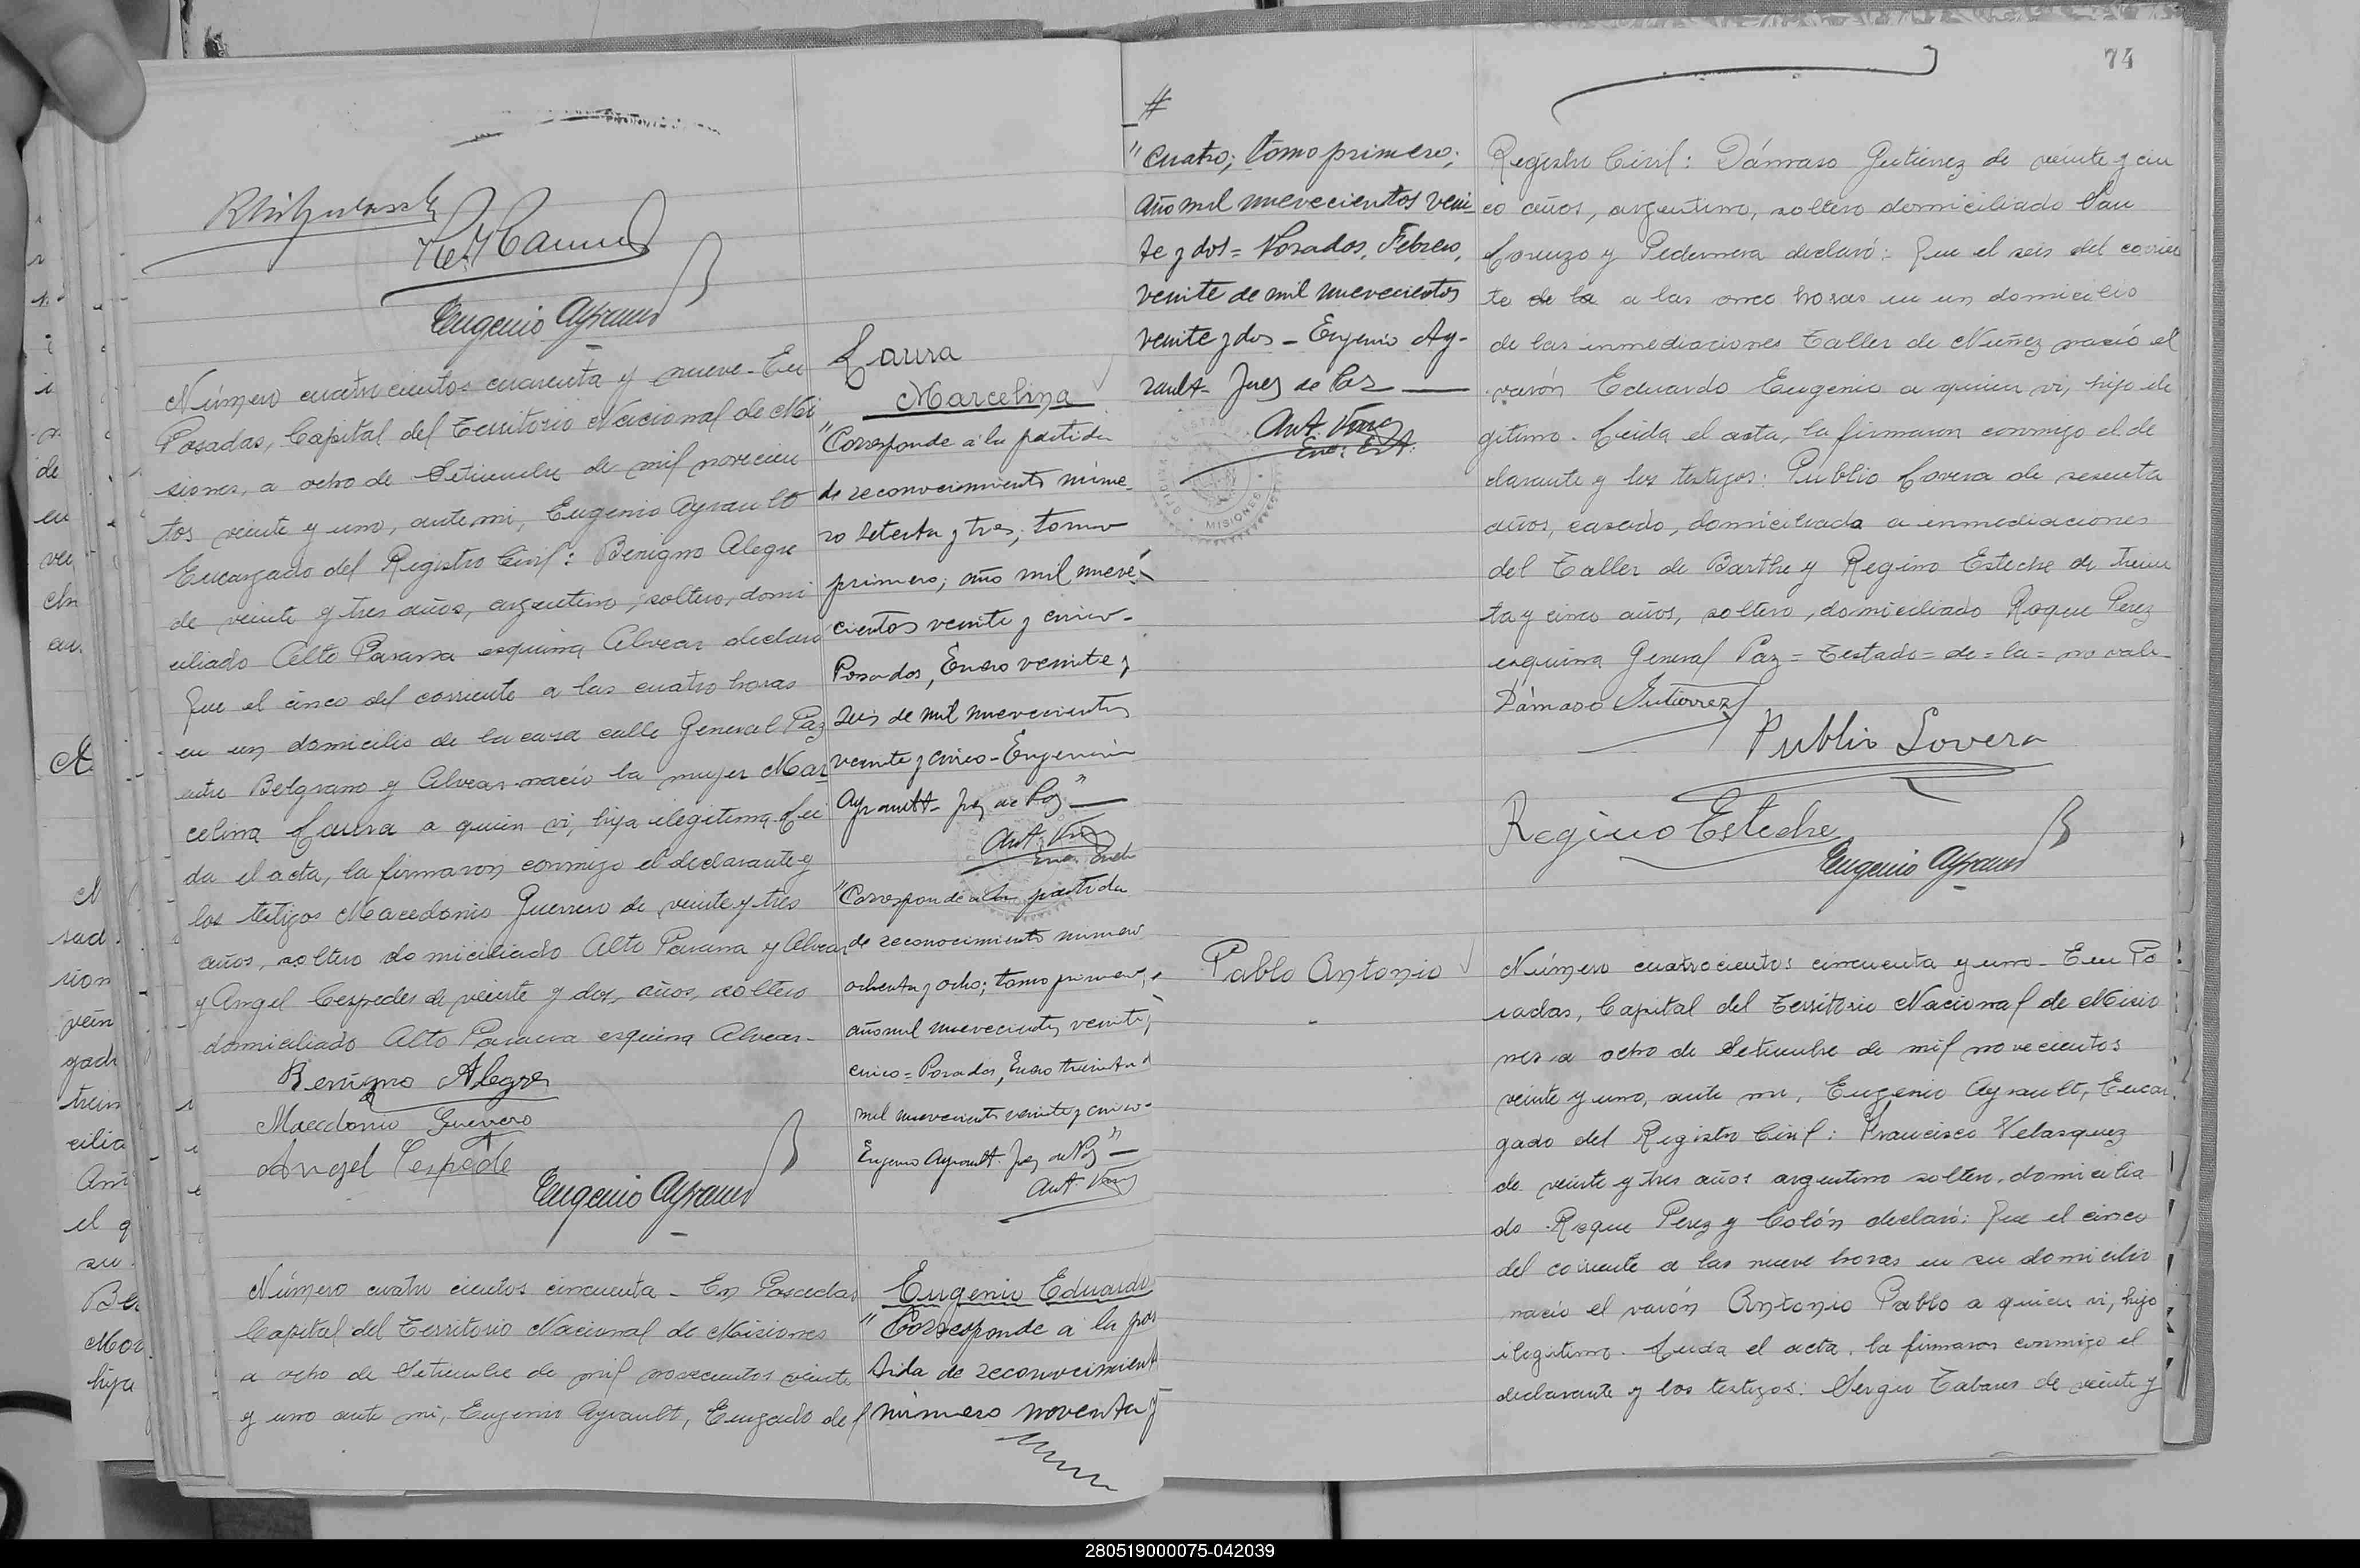 Eugenio Ayrault
Número cuatrocientos cuarenta y nueve - En
Posadas, Capital del Territorio Nacional de Mi
siones, a ocho de Setiembre de mil novecien
tos veinte y uno, ante mi, Eugenio Ayrault
Encargado del Registro Civil: Benigno Alegre
de veinte y tres años, argentino, soltero, domi
ciliado Alto Parana esquina Alvear declaro
Que el cinco del corriente a las cuatro horas
en un domicilio de la casa calle General Paz
entre Belgrano y Alvear nació la mujer Mar
celina Laura a quien vi, hija ilegitima. Lei
da el acta, la firmaron conmigo el declarante y
los testigos Macedonio Guerrero de veinte y tres
años, soltero domiciliado Alto Parana y Alvear
y Angel Cespedes de veinte y dos años, soltero
domiciliado Alto Parana esquina Alvear-
Benigno Alegre
Macedonio Guerrero
Angel Cespede
Eugenio Ayrault
Número cuatro cientos cincuenta - En Posadas
Capital del Territorio Nacional de Misiones
a ocho de Setiembre de mil novecientos veinte
y uno ante mi, Eugenio Ayrault, Encgado del
Laura
Marcelina
"Corresponde a la partida
de reconocimiento núme-
ro setenta y tres, tomo
primero; año mil nueve-
cientos veinte y cinco-
Posadas, Enero veinte y
seis de mil novecientos
veinte y cinco - Eugenio
Ayrault - Juez de Paz"
"Corresponde a la partida
de reconocimiento número
ochenta y ocho; tomo primero;
año mil nuevecientos veinte y
cinco = Posadas, Enero treinta d
mil nuevecientos veinte y cinco-
Eugenio Ayrault. Juez de Paz"
Eugenio Eduardo
"Corresponde a la par
tida de reconocimient
número noventa y
74
#
"cuatro; tomo primero;
año mil nuevecientos vein-
te y dos = Posadas, Febrero,
veinte de mil nuevecientos
veinte y dos - Eugenio Ay-
rault - Juez de Paz
MISIONES
Registro Civil: Dámaso Gutierrez de veinte y cin
co años, argentino, soltero domiciliado San
Lorenzo y Pedernera declaró: Que el seis del corrien
te de la a las once horas en un domicilio
de las inmediaciones Taller de Nuñez nació el
varón Eduardo Eugenio a quien vi, hijo ile
gitimo. Leida el acta, la firmaron conmigo el de
clarante y los testigos: Publio Lovera de sesenta
años, casado, domiciliado a inmediaciones
del Taller de Barthe y Regino Esteche de trein
ta y cinco años, soltero, domiciliado Roque Perez
esquina General Paz = Testado = de = la = no vale-
Dámaso Gutierrez
Publio Lovera
Regino Esteche
Eugenio Ayrault
Pablo Antonio
Número cuatrocientos cincuenta y uno - En Po
sadas, Capital del Territorio Nacional de Misio
nes a ocho de Setiembre de mil novecientos
veinte y uno, ante mi, Eugenio Ayrault, Encar
gado del Registro Civil: Francisco Velasquez
de veinte y tres años argentino soltero, domicilia
do Roque Perez y Colón declaró: Que el cinco
del coriente a las nueve horas en su domicilio
nació el varón Antonio Pablo a quien vi, hijo
ilegitimo. Leida el acta, la firmaron conmigo el
declarante y los testigos: Sergio Tabares de veinte y
280519000075-042039